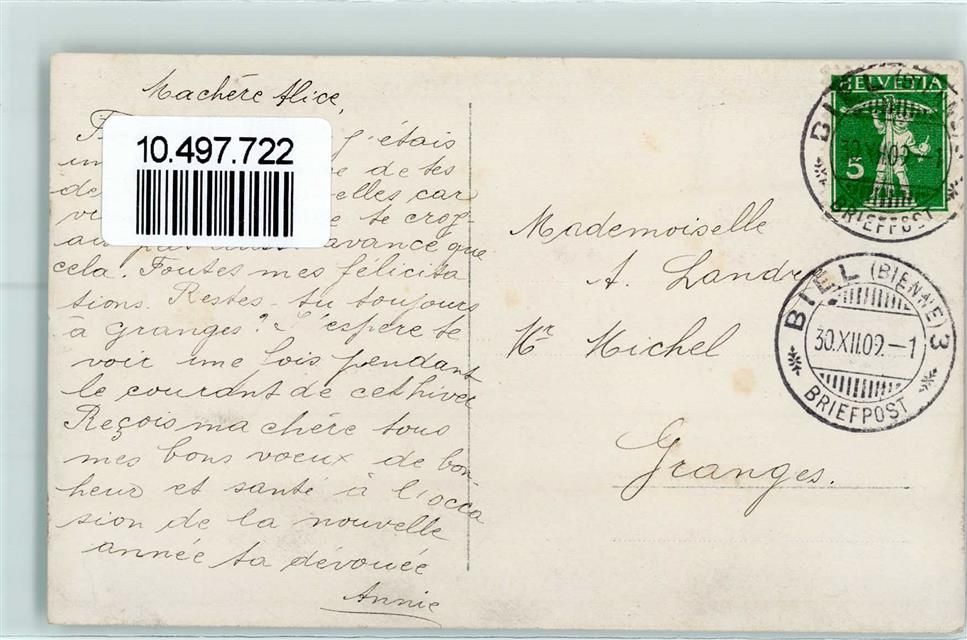 Machère Alice,
j'étais
de tes
elles car
te
avance que
cela. Toutes mes félicita
tions. Restes-tu toujours
à Granges? J'espère te
voir une fois pendant
le courant de cet hiver
Reçois ma chère tous
mes bons voeux de bon
heur et santé à l'occa
sion de la nouvelle
année ta dévouée
Annie
10.497.722
Mademoiselle
A. Landry
Mr Michel
Granges.
HELVETIA
5
BIEL (BIENNE) 3
30.XII.09.-1
BRIEFPOST
BIEL (BIENNE) 3
30.XII.09.-1
BRIEFPOST